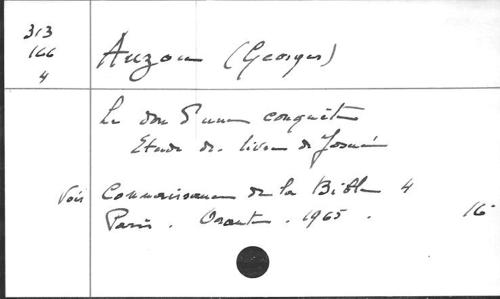 313
166
4
Auzou (Georges)
Le don d'une conquête
Etude du livre de Josué
Voir Connaissance de la Bible 4
Paris. Orante. 1965. 16